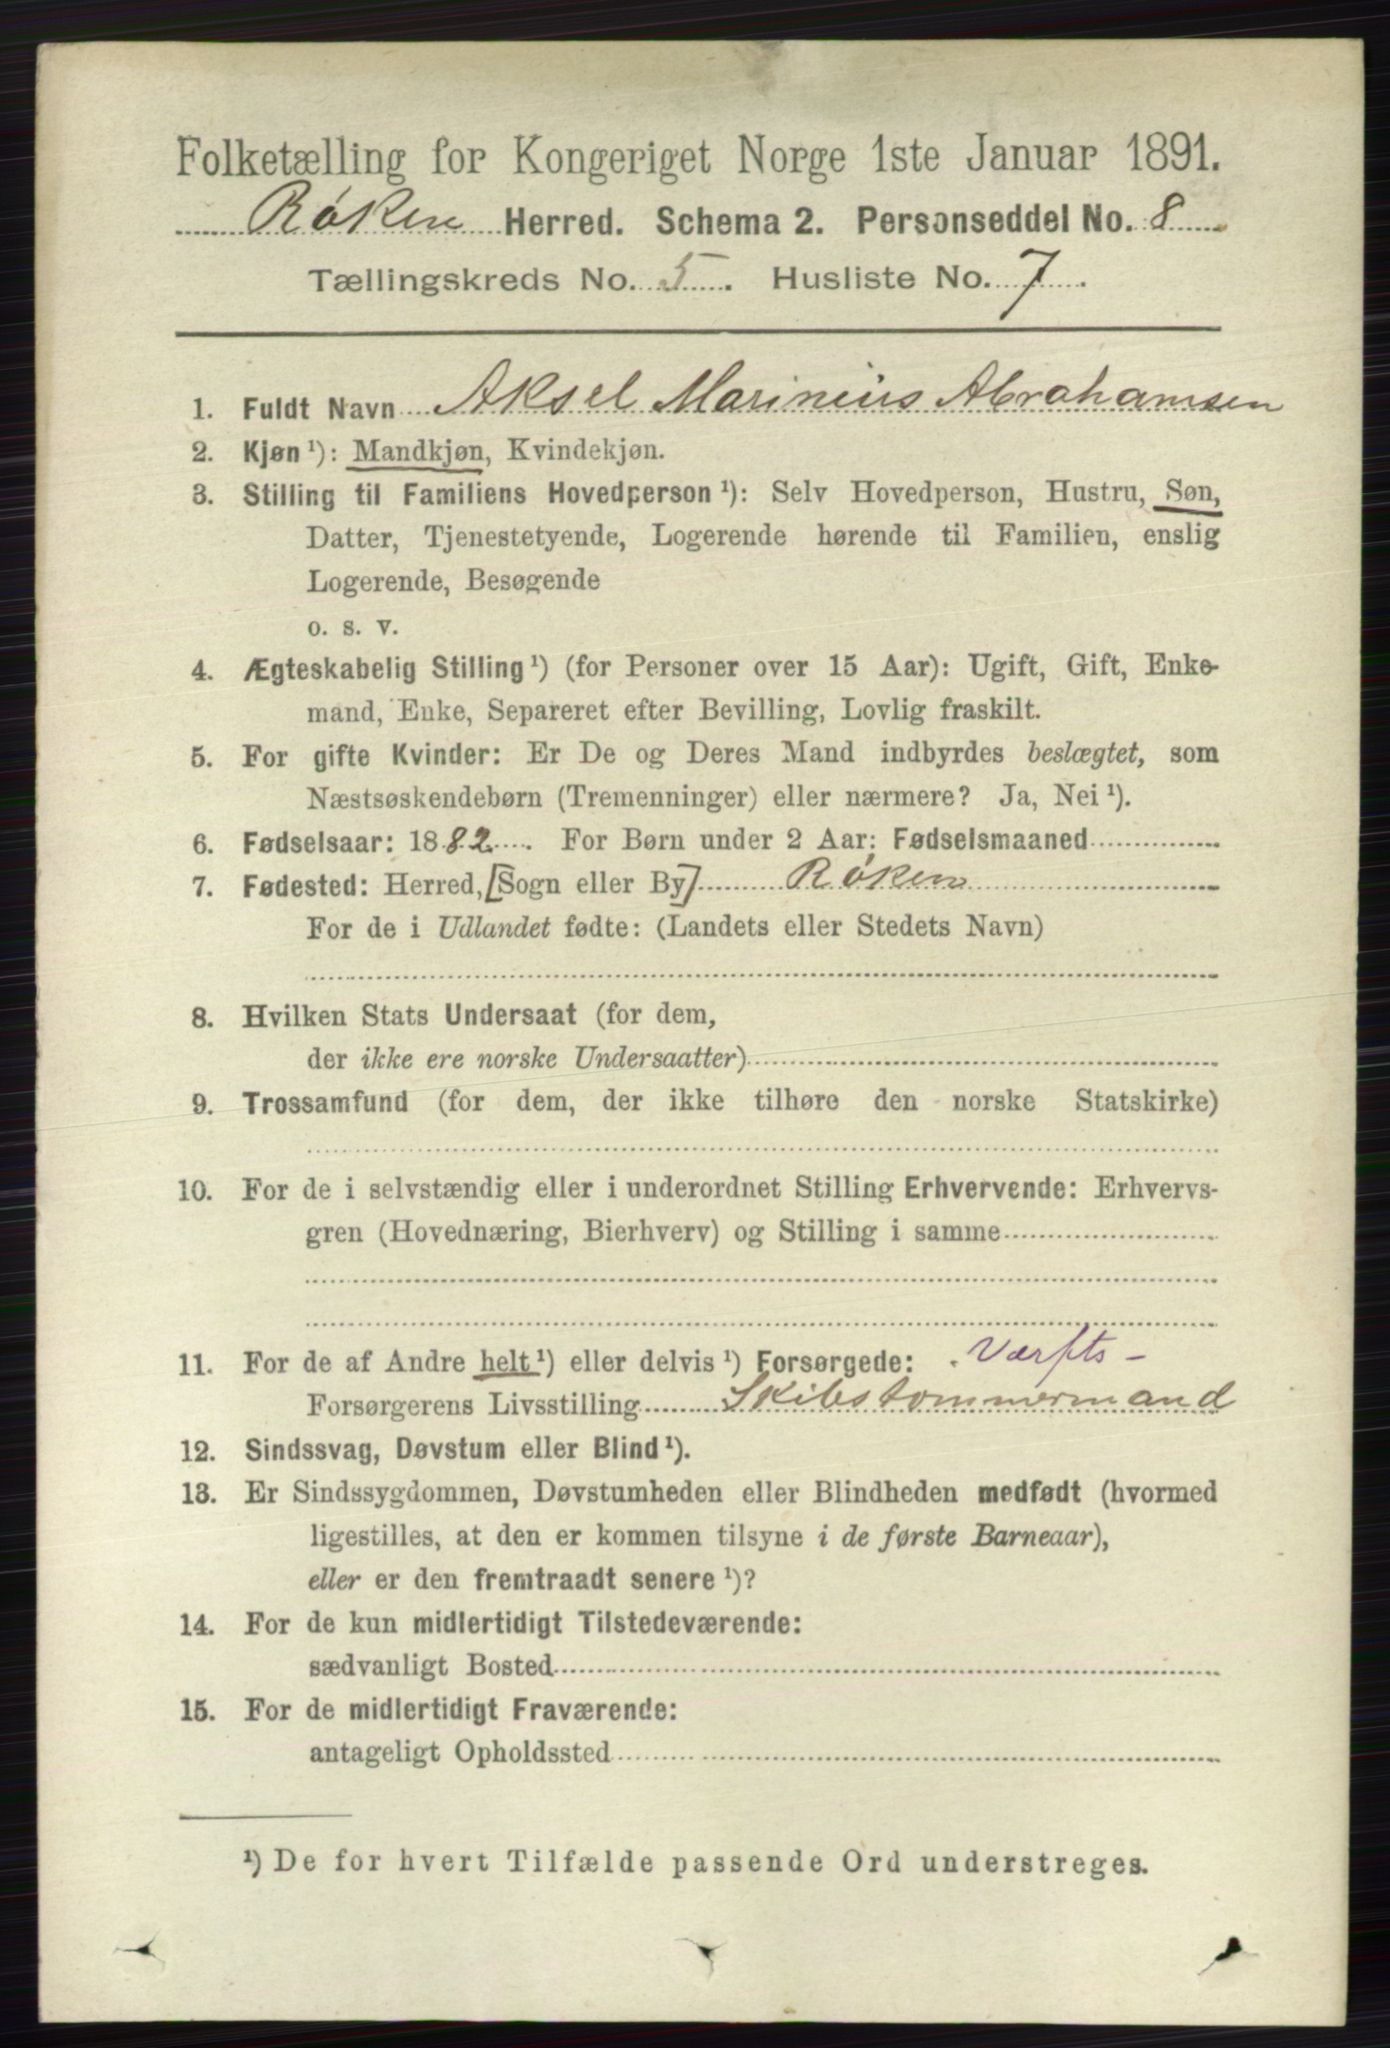 Folketælling for Kongeriget Norge 1ste Januar 1891.
Røken Herred. Schema 2. Personseddel No. 8
Tællingskreds No. 5. Husliste No. 7.
1. Fuldt Navn Aksel Marinius Abrahamsen
2. Kjøn ¹): Mandkjøn, Kvindekjøn.
3. Stilling til Familiens Hovedperson ¹): Selv Hovedperson, Hustru, Søn,
Datter, Tjenestetyende, Logerende hørende til Familien, enslig
Logerende, Besøgende
o. s. v.
4. Ægteskabelig Stilling ¹) (for Personer over 15 Aar): Ugift, Gift, Enke-
mand, Enke, Separeret efter Bevilling, Lovlig fraskilt.
5. For gifte Kvinder: Er De og Deres Mand indbyrdes beslægtet, som
Næstsøskendebørn (Tremenninger) eller nærmere? Ja, Nei ¹).
6. Fødselsaar: 1882. For Børn under 2 Aar: Fødselsmaaned
7. Fødested: Herred, [Sogn eller By] Røken
For de i Udlandet fødte: (Landets eller Stedets Navn)
8. Hvilken Stats Undersaat (for dem,
der ikke ere norske Undersaatter)
9. Trossamfund (for dem, der ikke tilhøre den norske Statskirke)
10. For de i selvstændig eller i underordnet Stilling Erhvervende: Erhvervs-
gren (Hovednæring, Bierhverv) og Stilling i samme
11. For de af Andre helt ¹) eller delvis ¹) Forsørgede: Værfts-
Forsørgerens Livsstilling Skibstømmermand
12. Sindssvag, Døvstum eller Blind ¹).
13. Er Sindssygdommen, Døvstumheden eller Blindheden medfødt (hvormed
ligestilles, at den er kommen tilsyne i de første Barneaar),
eller er den fremtraadt senere ¹)?
14. For de kun midlertidigt Tilstedeværende:
sædvanligt Bosted
15. For de midlertidigt Fraværende:
antageligt Opholdssted
¹) De for hvert Tilfælde passende Ord understreges.